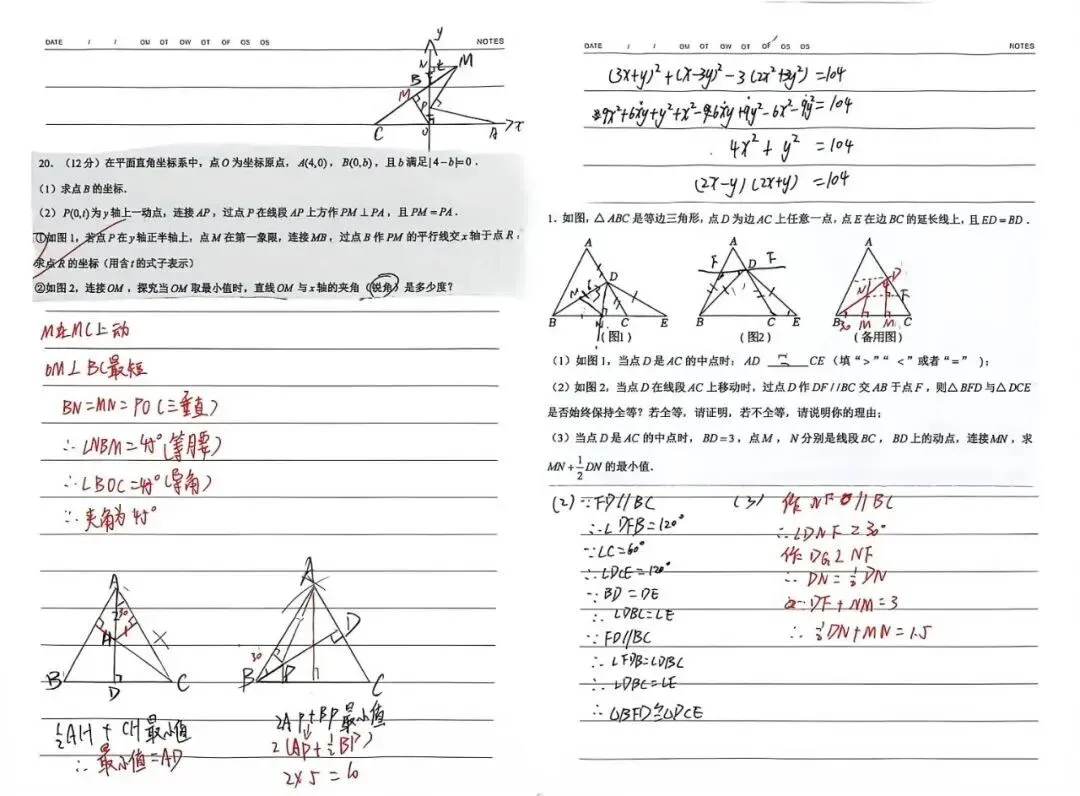 DATE / / OM OT OW OT OF OS OS NOTES
y
N
t
M
B
M
P
C
O
A
x
20. (12分) 在平面直角坐标系中，点O为坐标原点，A(4,0)，B(0,b)，且b满足|4-b|=0．
(1) 求点B的坐标．
(2) P(0,t)为y轴上一动点，连接AP，过点P在线段AP上方作PM⊥PA，且PM=PA．
①如图1，若点P在y轴正半轴上，点M在第一象限，连接MB，过点B作PM的平行线交x轴于点R，
求点R的坐标（用含t的式子表示）
②如图2，连接OM，探究当OM取最小值时，直线OM与x轴的夹角（锐角）是多少度？
M在MC上动
OM⊥BC最短
BN=MN=PO(三垂直)
∴∠NBM=45°(等腰)
∴∠BOC=45°(导角)
∴夹角为45°
A
30
H
B
D
C
A
D
30
B
P
C
½AH + CH最小值
∴最小值=AD
2AP+BP最小值
2(AP+½BP)
2×5=10
DATE / / OM OT OW OT OF OS OS NOTES
(3x+y)²+(x-3y)²-3(2x²+3y²)=104
9x²+6xy+y²+x²-6xy+9y²-6x²-9y²=104
4x²+y²=104
(2x-y)(2x+y)=104
1. 如图，△ABC是等边三角形，点D为边AC上任意一点，点E在边BC的延长线上，且ED=BD．
A
D
N
B
C
E
(图1)
A
F
D
F
B
C
E
(图2)
A
D
N
F
B
30
M
M
C
(备用图)
(1) 如图1，当点D是AC的中点时：AD = CE（填“>”“<”或者“=”）；
(2) 如图2，当点D在线段AC上移动时，过点D作DF//BC交AB于点F，则△BFD与△DCE
是否始终保持全等？若全等，请证明，若不全等，请说明你的理由；
(3) 当点D是AC的中点时，BD=3，点M，N分别是线段BC，BD上的动点，连接MN，求
MN+½DN的最小值．
(2) ∵FD//BC
∴∠DFB=120°
∵∠C=60°
∴∠DCE=120°
∵BD=DE
∴∠DBC=∠E
∵FD//BC
∴∠FDB=∠DBC
∴∠DBC=∠E
∴△BFD≅△DCE
(3) 作NF//BC
∴∠DNF=30°
作DG⊥NF
∴DN=½DN
DF+NM=3
∴½DN+MN=1.5